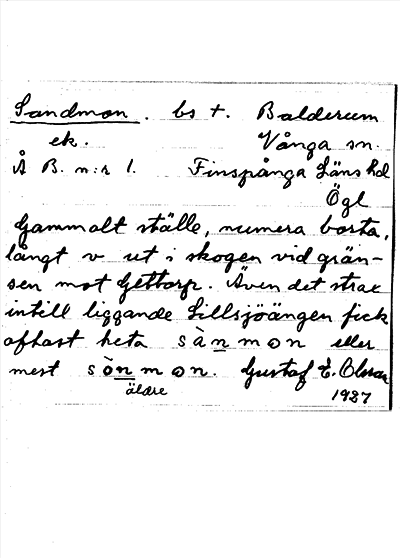 Sandmon. bs t. Balderum
ek. Vånga sn.
Å B. n:r 1. Finspånga Läns hd
Ögl
Gammalt ställe, numera borta,
långt v ut i skogen vid grän-
sen mot Gettorp. Även det strax
intill liggande Lillsjöängen fick
oftast heta sànmon eller
mest sònmon. Gustaf E. Olsson
äldre 1927